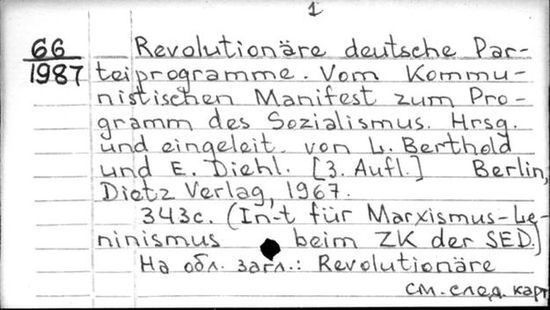 1
66
1987
Revolutionäre deutsche Par-
teiprogramme. Vom Kommu-
nistischen Manifest zum Pro-
gramm des Sozialismus. Hrsg.
und eingeleit. von L. Berthold
und E. Diehl. [3. Aufl.] Berlin,
Dietz Verlag, 1967.
343c. (In-t für Marxismus-Le-
ninismus beim ZK der SED.)
На обл. загл.: Revolutionäre
см. след. карт